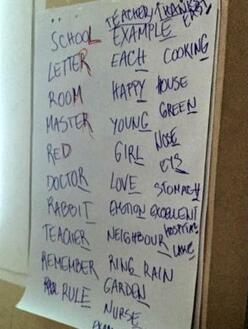 TEACHER/TRAINER
EASY
SCHOOL EXAMPLE
LETTER EACH COOKING
ROOM HAPPY HOUSE
MASTER YOUNG GREEN
RED GIRL NOSE
DOCTOR LOVE STOMACH
RABBIT EMOTION EXCELLENT
HOSPITAL
TEACHER NEIGHBOUR LAKE
REMEMBER RING RAIN
RULE GARDEN
NURSE